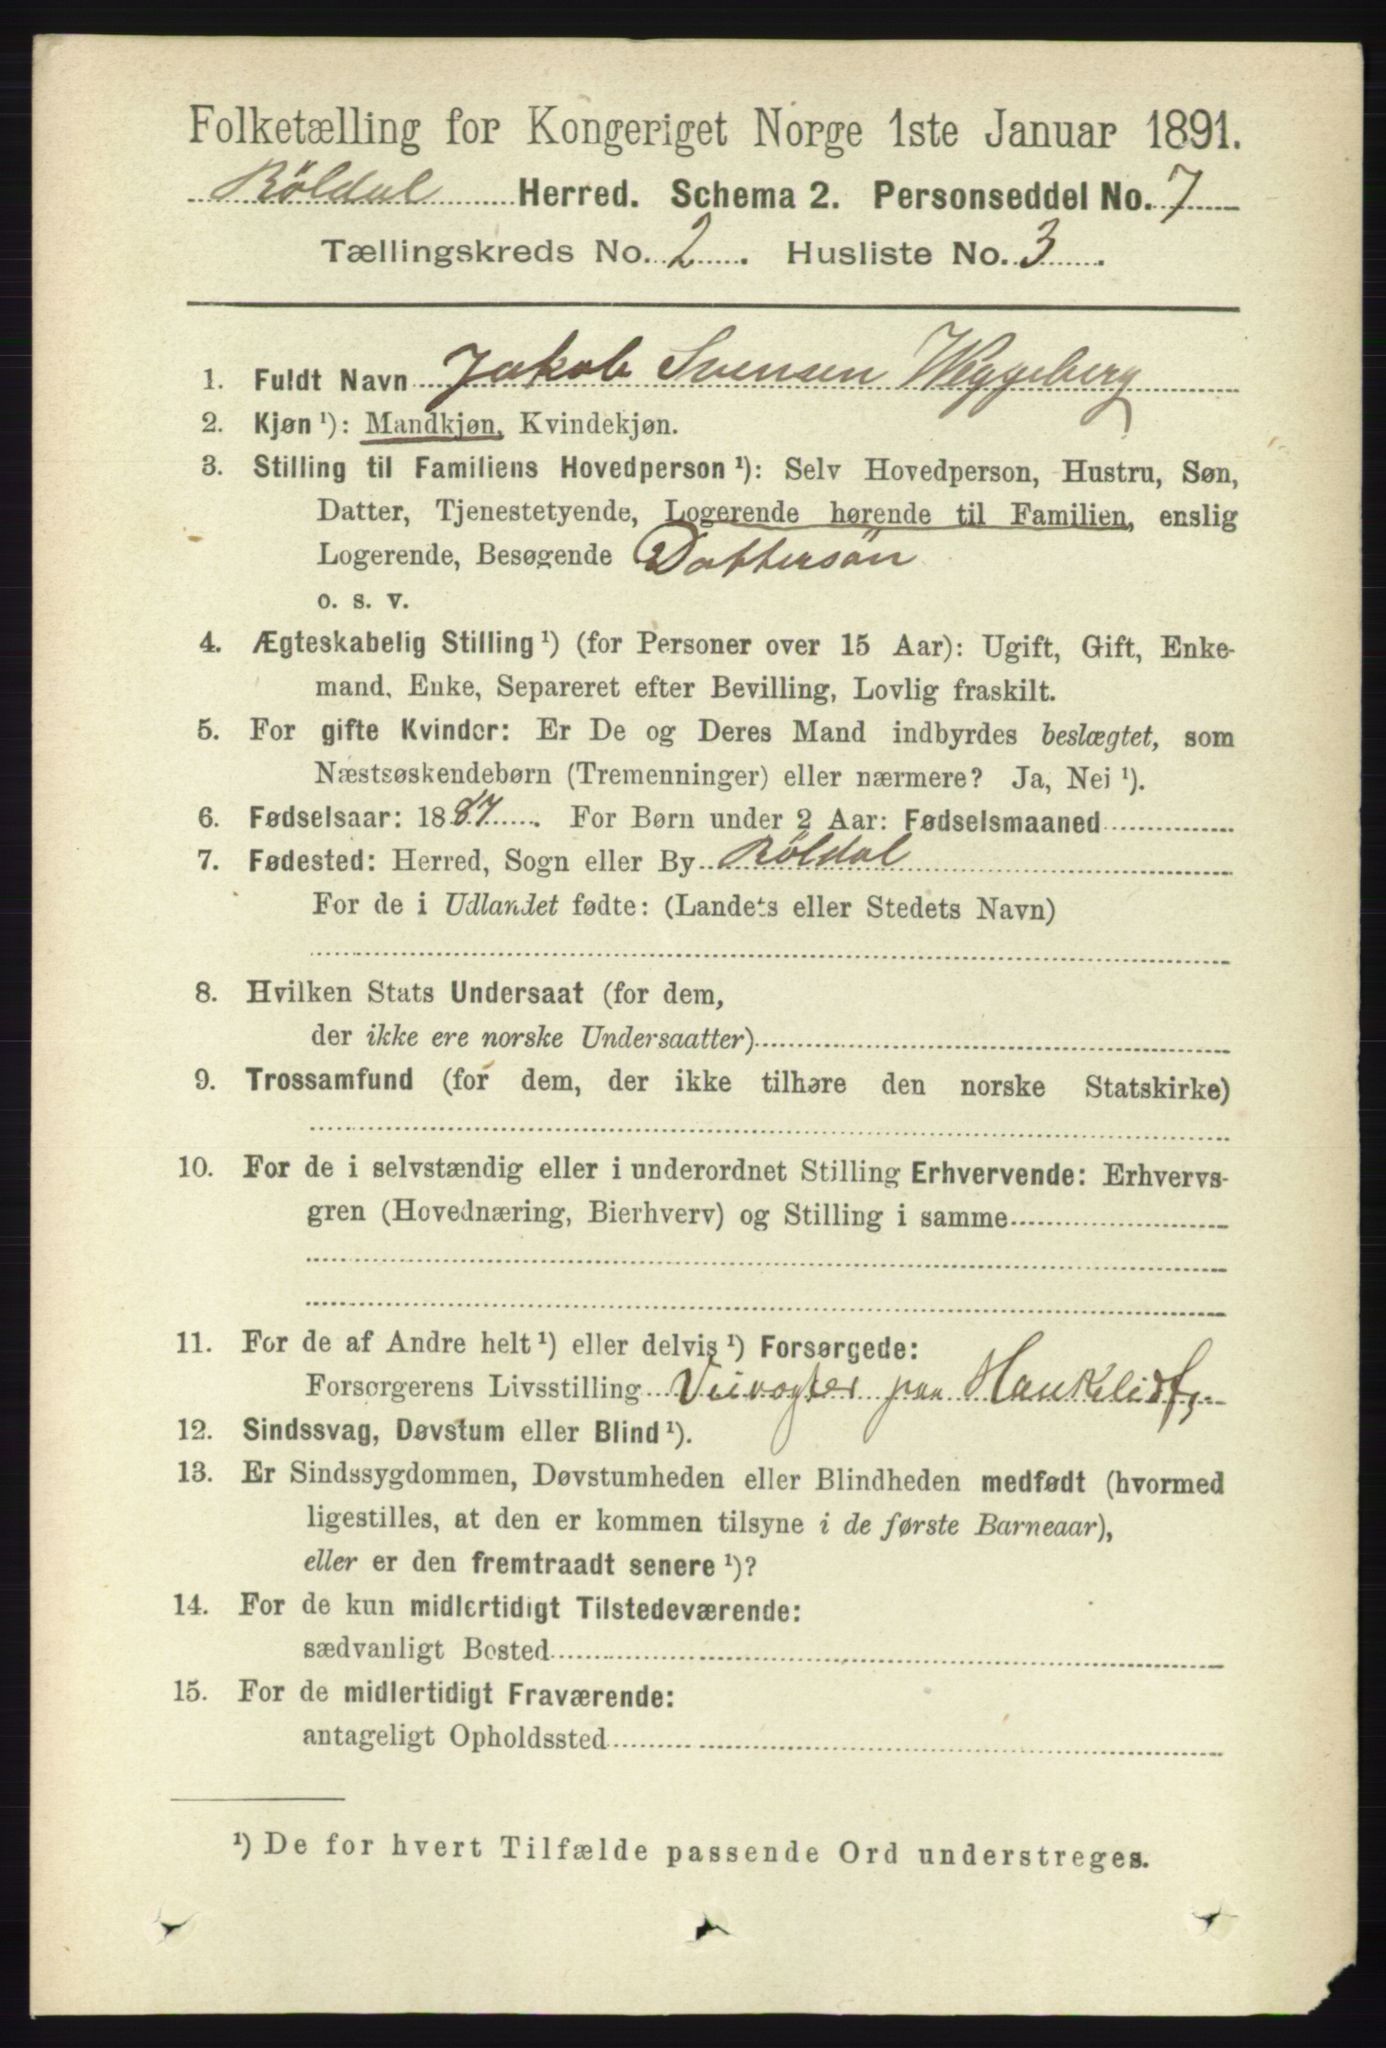 Folketælling for Kongeriget Norge 1ste Januar 1891.
Röldal Herred. Schema 2. Personseddel No. 7
Tællingskreds No. 2. Husliste No. 3.
1. Fuldt Navn Jakob Svensen Weggeberg
2. Kjøn ¹): Mandkjøn, Kvindekjøn.
3. Stilling til Familiens Hovedperson ¹): Selv Hovedperson, Hustru, Søn,
Datter, Tjenestetyende, Logerende hørende til Familien, enslig
Logerende, Besøgende Dattersön
o. s. v.
4. Ægteskabelig Stilling ¹) (for Personer over 15 Aar): Ugift, Gift, Enke-
mand, Enke, Separeret efter Bevilling, Lovlig fraskilt.
5. For gifte Kvinder: Er De og Deres Mand indbyrdes beslægtet, som
Næstsøskendebørn (Tremenninger) eller nærmere? Ja, Nei ¹).
6. Fødselsaar: 1887. For Børn under 2 Aar: Fødselsmaaned
7. Fødested: Herred, Sogn eller By Röldal
For de i Udlandet fødte: (Landets eller Stedets Navn)
8. Hvilken Stats Undersaat (for dem,
der ikke ere norske Undersaatter)
9. Trossamfund (for dem, der ikke tilhøre den norske Statskirke)
10. For de i selvstændig eller i underordnet Stilling Erhvervende: Erhvervs-
gren (Hovednæring, Bierhverv) og Stilling i samme
11. For de af Andre helt ¹) eller delvis ¹) Forsørgede:
Forsørgerens Livsstilling Veivogter paa Haukelidfj.
12. Sindssvag, Døvstum eller Blind ¹).
13. Er Sindssygdommen, Døvstumheden eller Blindheden medfødt (hvormed
ligestilles, at den er kommen tilsyne i de første Barneaar),
eller er den fremtraadt senere ¹)?
14. For de kun midlertidigt Tilstedeværende:
sædvanligt Bosted
15. For de midlertidigt Fraværende:
antageligt Opholdssted
¹) De for hvert Tilfælde passende Ord understreges.